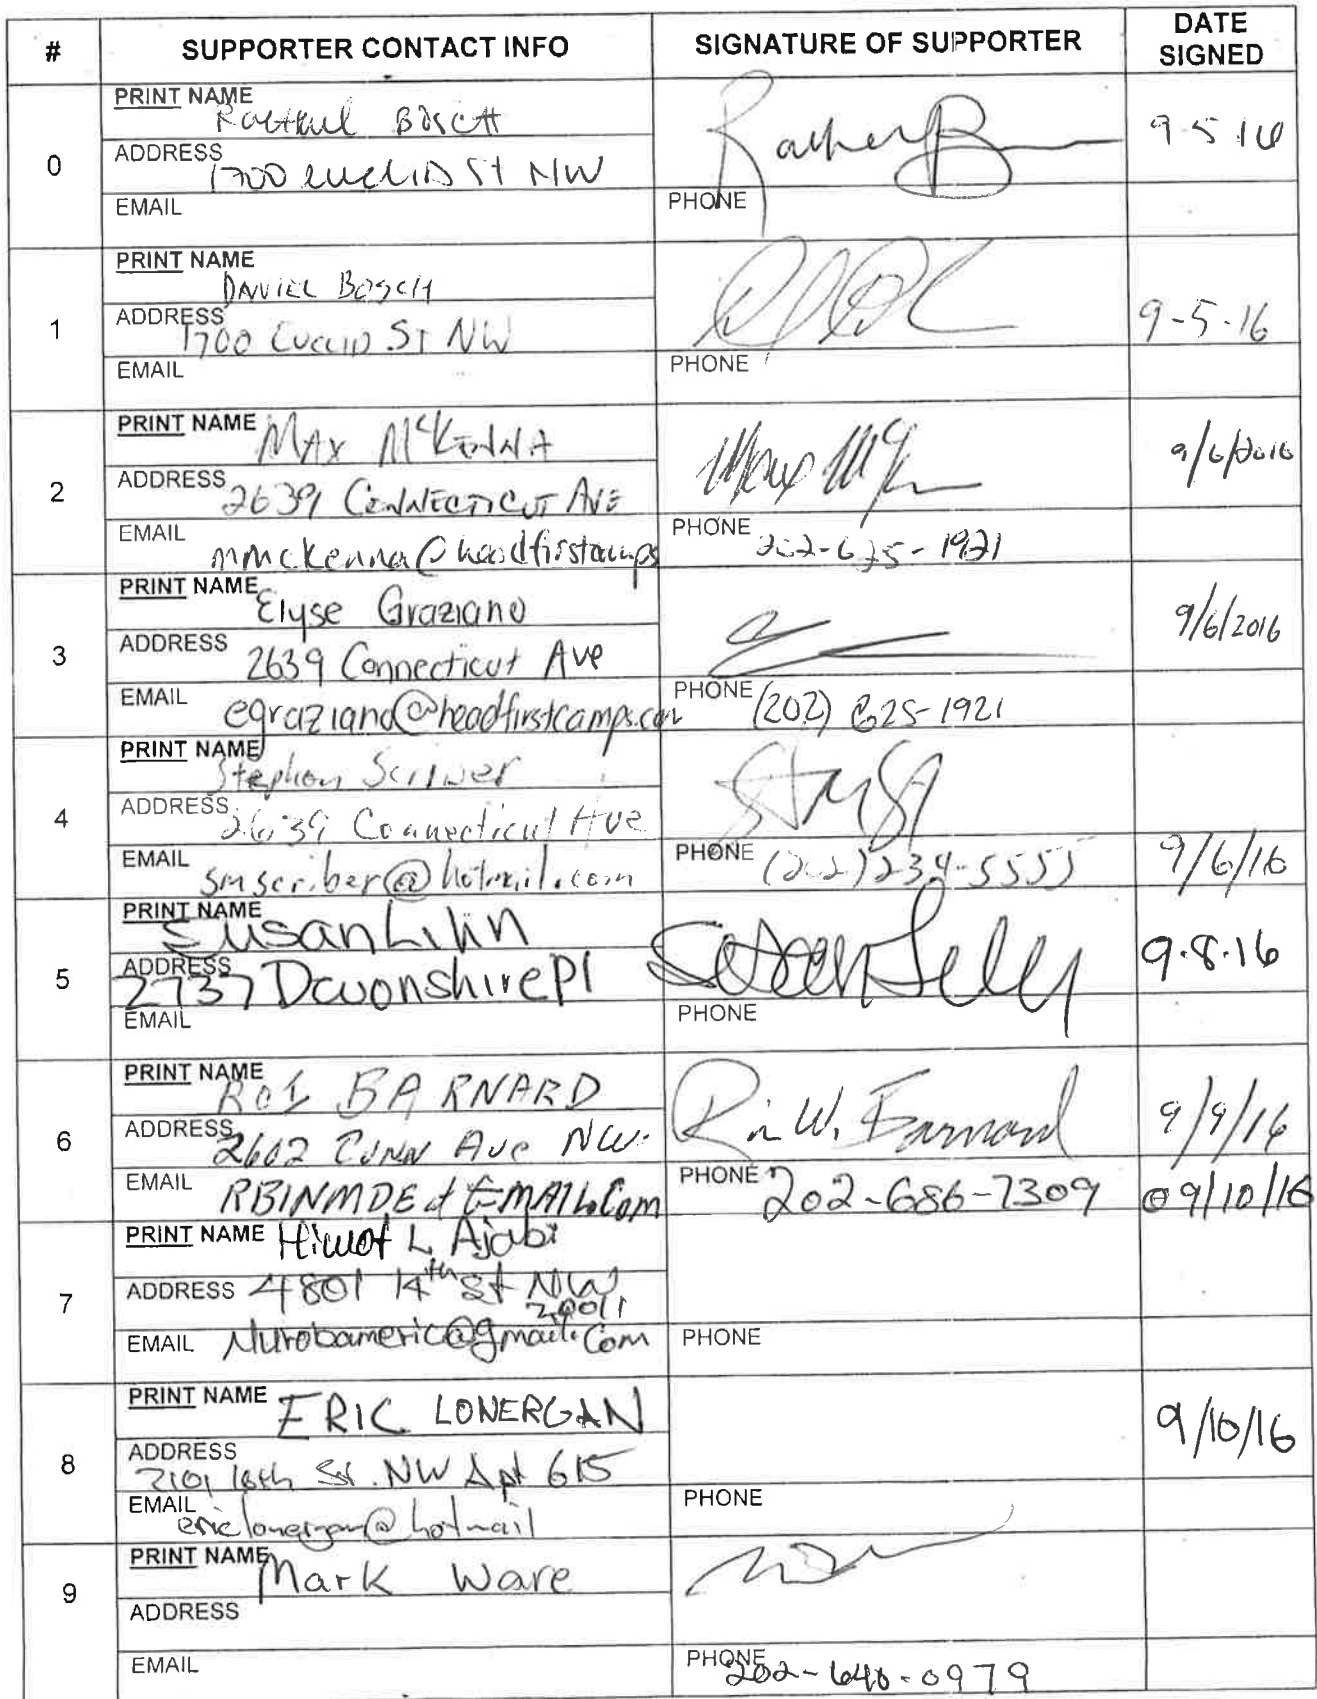 # SUPPORTER CONTACT INFO SIGNATURE OF SUPPORTER DATE SIGNED
0
PRINT NAME Rachel Bosch
ADDRESS 1700 Euclid St NW
EMAIL
PHONE
9-5-16
1
PRINT NAME Daniel Bosch
ADDRESS 1700 Euclid St NW
EMAIL
PHONE
9-5-16
2
PRINT NAME Max McKenna
ADDRESS 2639 Connecticut Ave
EMAIL mmckenna@headfirstcamps
PHONE 202-625-1921
9/6/2016
3
PRINT NAME Elyse Graziano
ADDRESS 2639 Connecticut Ave
EMAIL egraziano@headfirstcamps.com
PHONE (202) 625-1921
9/6/2016
4
PRINT NAME Stephen Scriber
ADDRESS 2639 Connecticut Ave
EMAIL smscriber@hotmail.com
PHONE (202) 234-5555
9/6/16
5
PRINT NAME Susan
ADDRESS 2737 Devonshire Pl
EMAIL
PHONE
9.8.16
6
PRINT NAME BARNARD
ADDRESS 2602 Conn Ave NW.
EMAIL
W. Barnard
PHONE 202-686-7309
9/9/16
09/10/16
7
PRINT NAME L Ajabi
ADDRESS 4801 14th St NW
20011
EMAIL
PHONE
8
PRINT NAME ERIC LONERGAN
ADDRESS 2101 16th St. NW Apt 615
EMAIL ericlonergan@hotmail
PHONE
9/10/16
9
PRINT NAME Mark Ware
ADDRESS
EMAIL
PHONE 202-640-0979